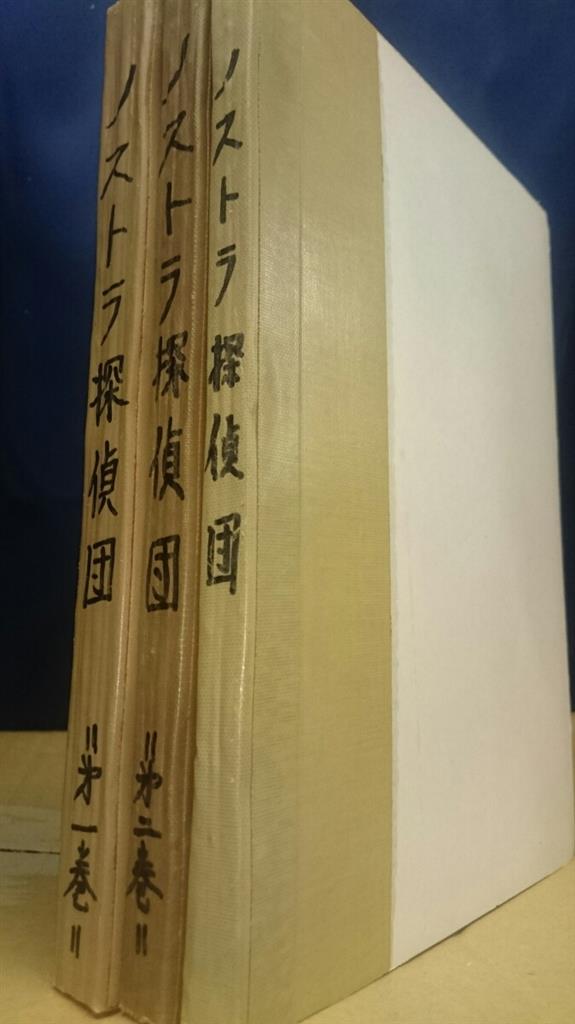 ノストラ探偵団
〃第一巻〃
ノストラ探偵団
〃第二巻〃
ノストラ探偵団